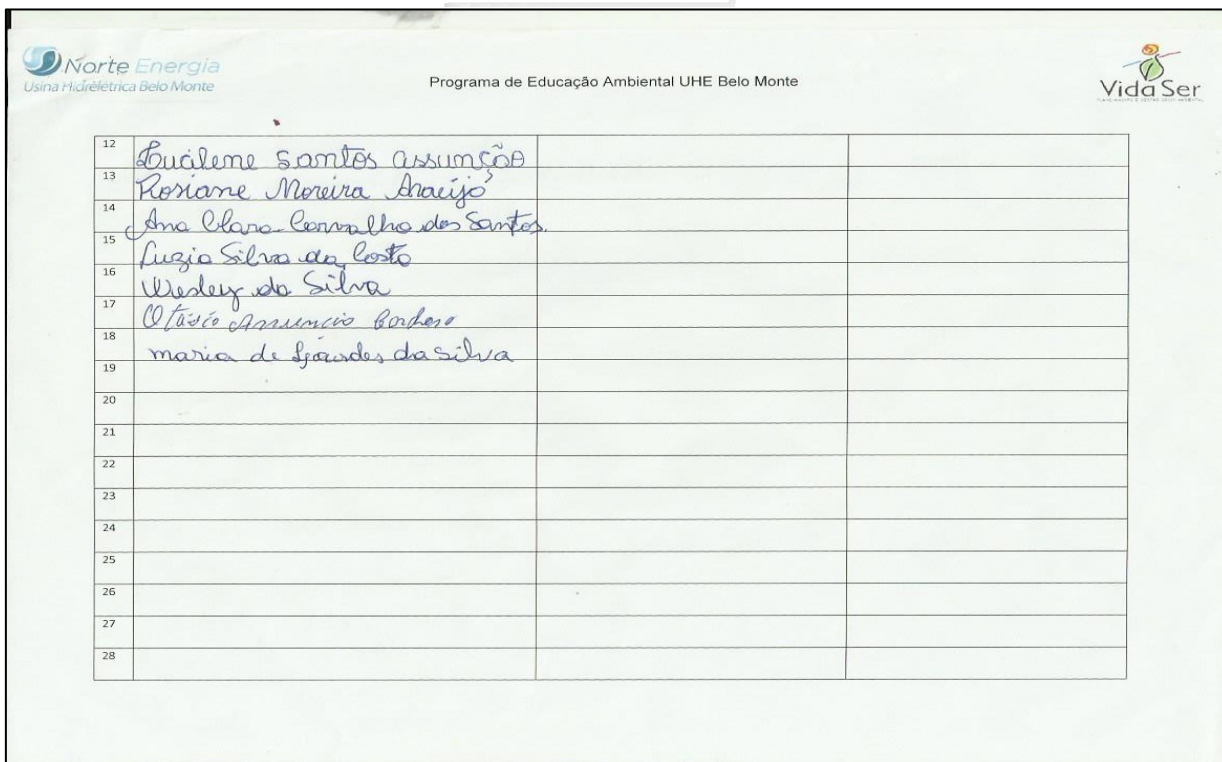 Norte Energia
Usina Hidrelétrica Belo Monte
Programa de Educação Ambiental UHE Belo Monte
Vida Ser
12 Lucilene Santos assunção
13 Rosiane Moreira Araújo
14 Ana Clara Carvalho dos Santos.
15 Luzia Silva da Costa
16 Wesley da Silva
17 Otávio
18 maria de Lourdes da silva
19
20
21
22
23
24
25
26
27
28